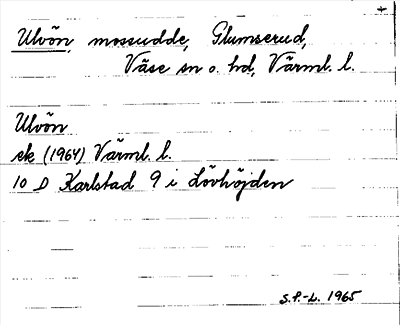 +
Ulvön, mossudde, Glumserud,
Väse sn o. hd, Värml. l.
Ulvön
ek (1964) Värml. l.
10 D Karlstad 9 i Lövhöjden
S.P.-L. 1965